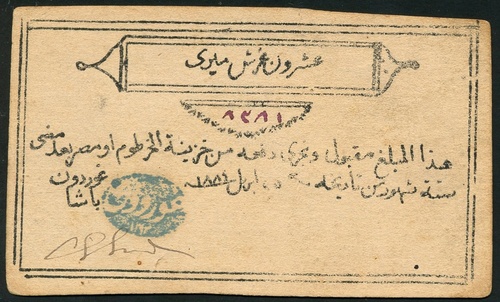 عشرون غرش ميرى
٨٢٨١
هذا المبلغ مقبول ويجرى دفعه من خزينة الخرطوم او مصر بعد مضى
ستة شهور من تاريخه ٢٥ ابريل ١٨٨٤
غوردون
باشا